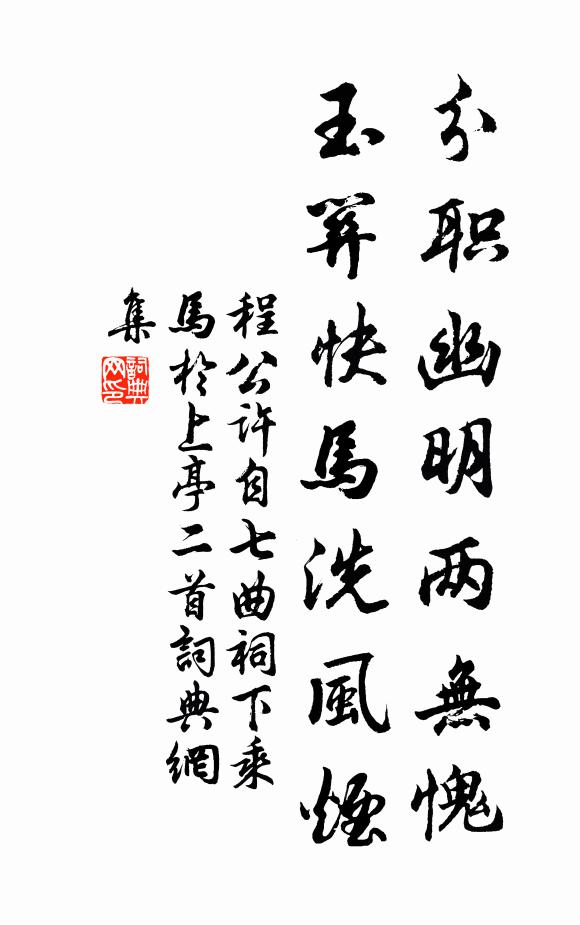 分职幽明两無愧
玉筭快馬洗風煙
程公许自七曲祠下乘
馬於上亭二首詞典網
集
詞典
网印